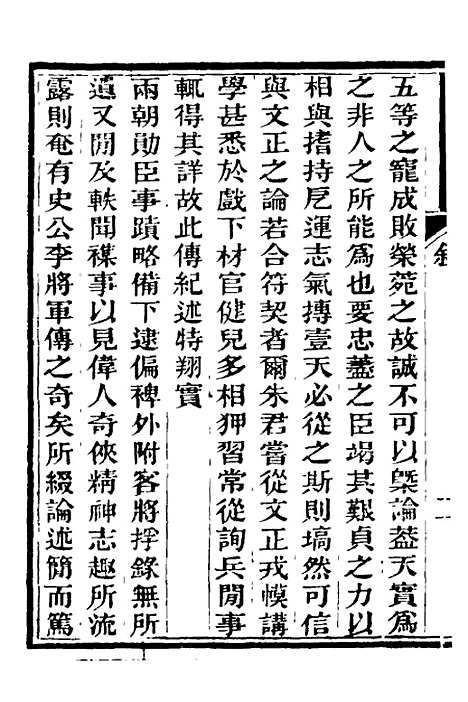 五等之寵成敗榮菀之故誠不可以槩論葢天實爲
之非人之所能爲也要忠藎之臣竭其艱貞之力以
相與搘持戹運志氣摶壹天必從之斯則塙然可信
與文正之論若合符契者爾朱君嘗從文正戎幙講
學甚悉於戲下材官健兒多相狎習常從詢兵閒事
輒得其詳故此傳紀述特翔實
兩朝勛臣事蹟略備下逮偏裨外附客將捊錄無所
遺又閒及軼聞襍事以見偉人奇俠精神志趣所流
露則奄有史公李將軍傳之奇矣所綴論述簡而篤